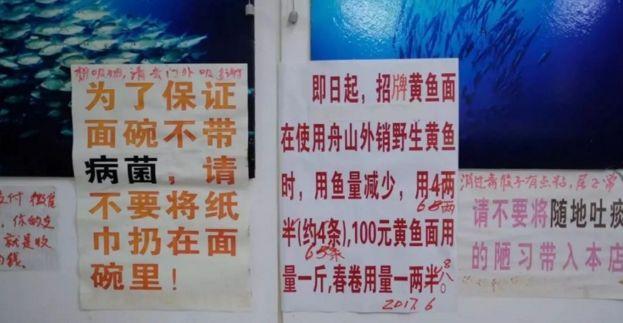 想吸烟,请去门外吸
为了保证
面碗不带
病菌，请
不要将纸
巾扔在面
碗里！
即日起，招牌黄鱼面
在使用舟山外销野生黄鱼
时，用鱼量减少，用4两
6两
半(约4条),100元黄鱼面用
6条
量一斤,春卷用量一两半。
2017.6
消过毒
有点粘,
请不要将随地吐痰
的陋习带入本店
付
你的
就是收
钱。